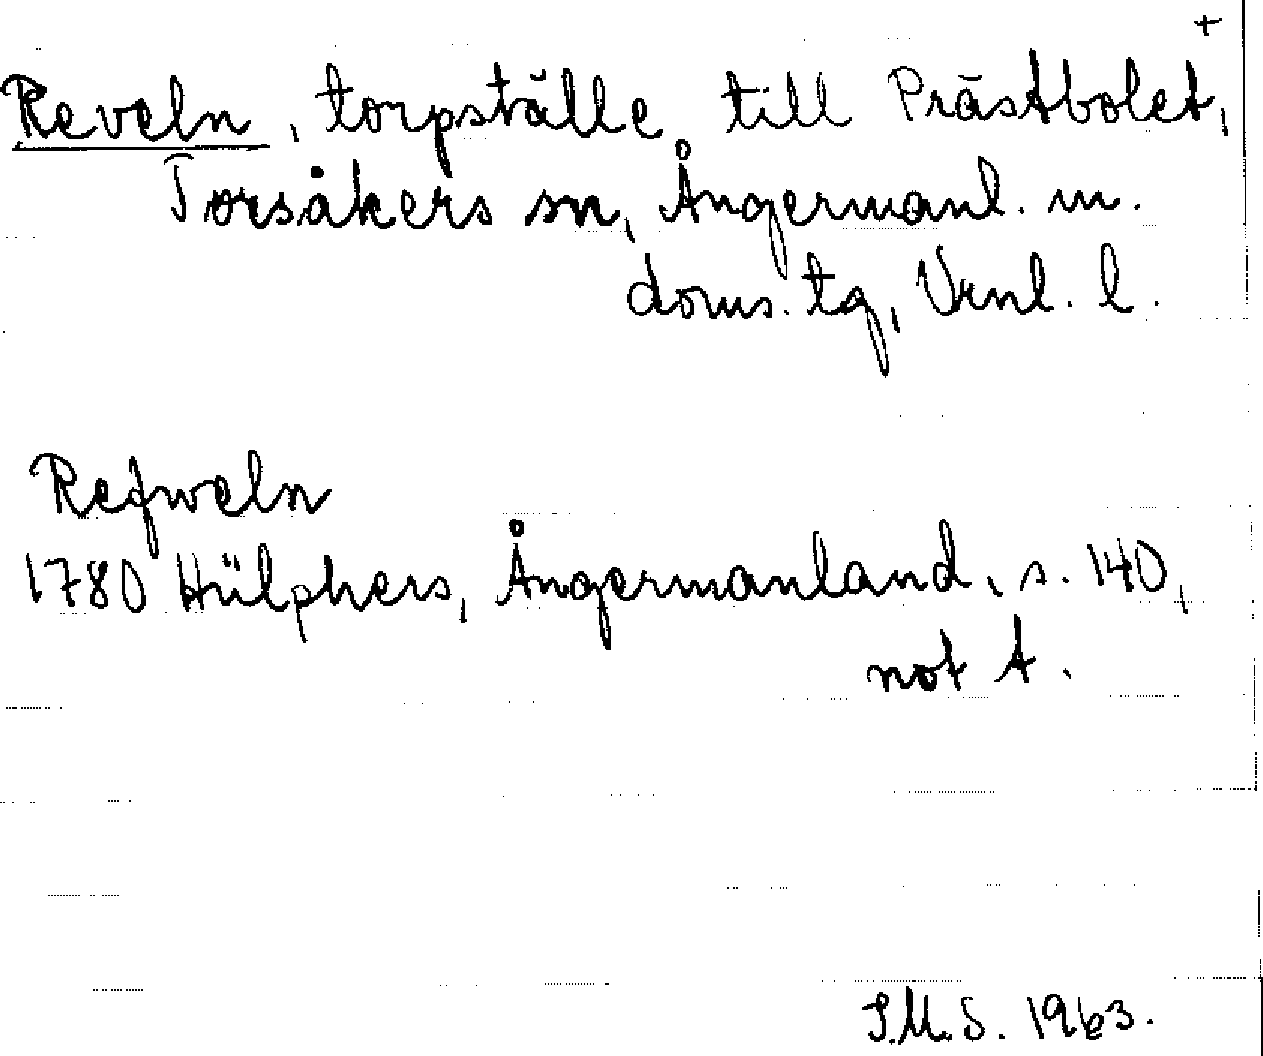 +
Reveln, torpställe till Prästbolet,
Torsåkers sn, Ångermanl. m.
doms. tg, Vrnl. l.
Refweln
1780 Hülphers, Ångermanland, s. 140,
not t.
S.M.S. 1963.